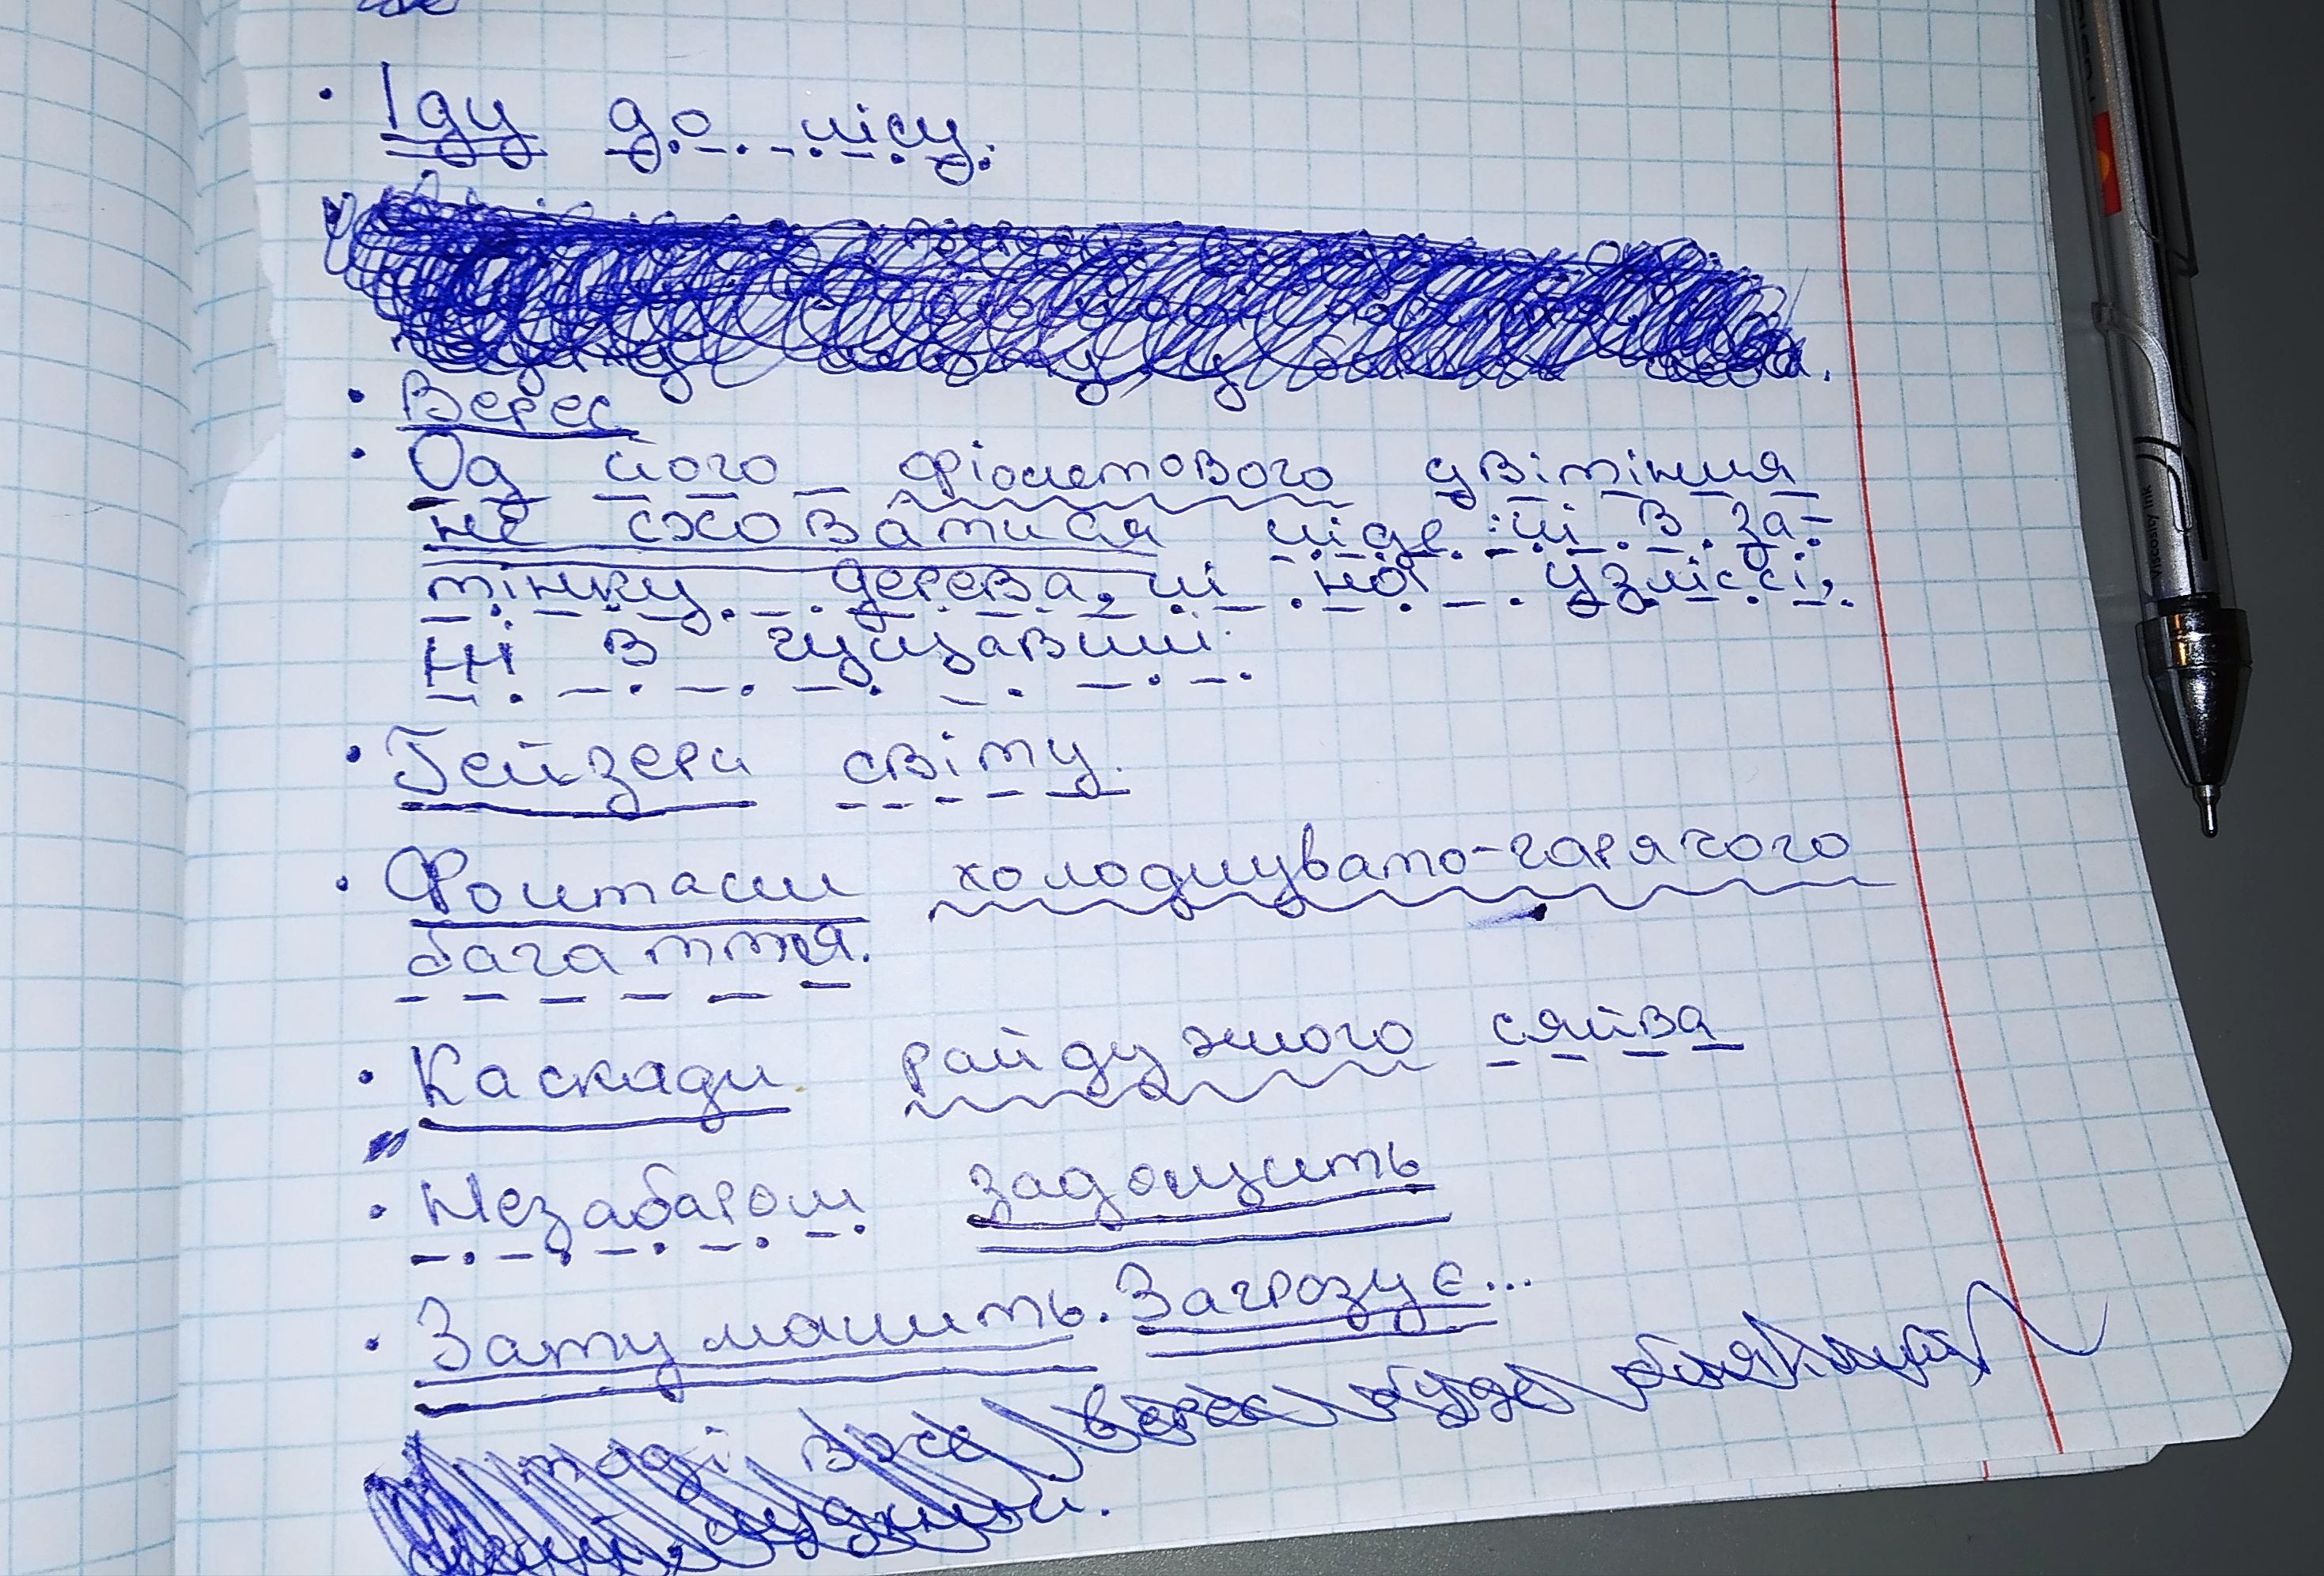 • Іду до лісу.
• Верес
• Од його фіолетового цвітіння
не сховатися ніде: ні в за-
тінку дерева, ні на узліссі,
ні в гущавині.
• Гейзери світу.
• Фонтани холоднувато-гарячого
багаття.
• Каскади райдужного сяйва
• Незабаром задощить
• Затуманить. Загрозує...
тоді верес буде